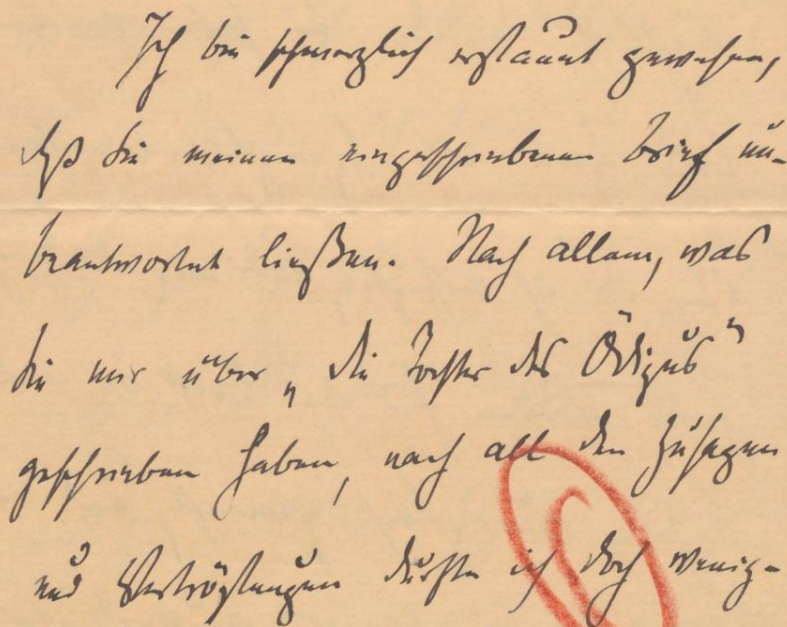 Ich bin schmerzlich erstaunt gewesen,
daß Sie meinen eingeschriebenen Brief un-
beantwortet ließen. Nach allem, was
Sie mir über „Die Tochter des Ödipus"
geschrieben haben, nach all den Zusagen
und Vertröstungen durfte ich doch wenig-